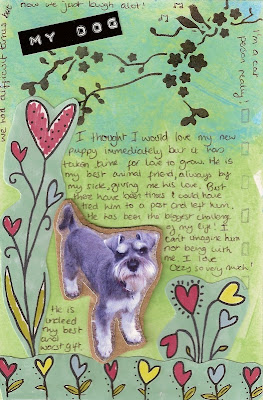 now we just laugh alot!
we had difficult times but
MY DOG
I'm a cat
person really!
I thought I would love my new
puppy immediately but it has
taken time for love to grow. He is
my best animal friend, always by
my side, giving me his love. But
there have been times I could have
tied him to a post and left him,
He has been the biggest challenge
of my life! I
can't imagine him
not being with
me. I love
Ozzy so very much!
He is
indeed
my best
and
worst gift